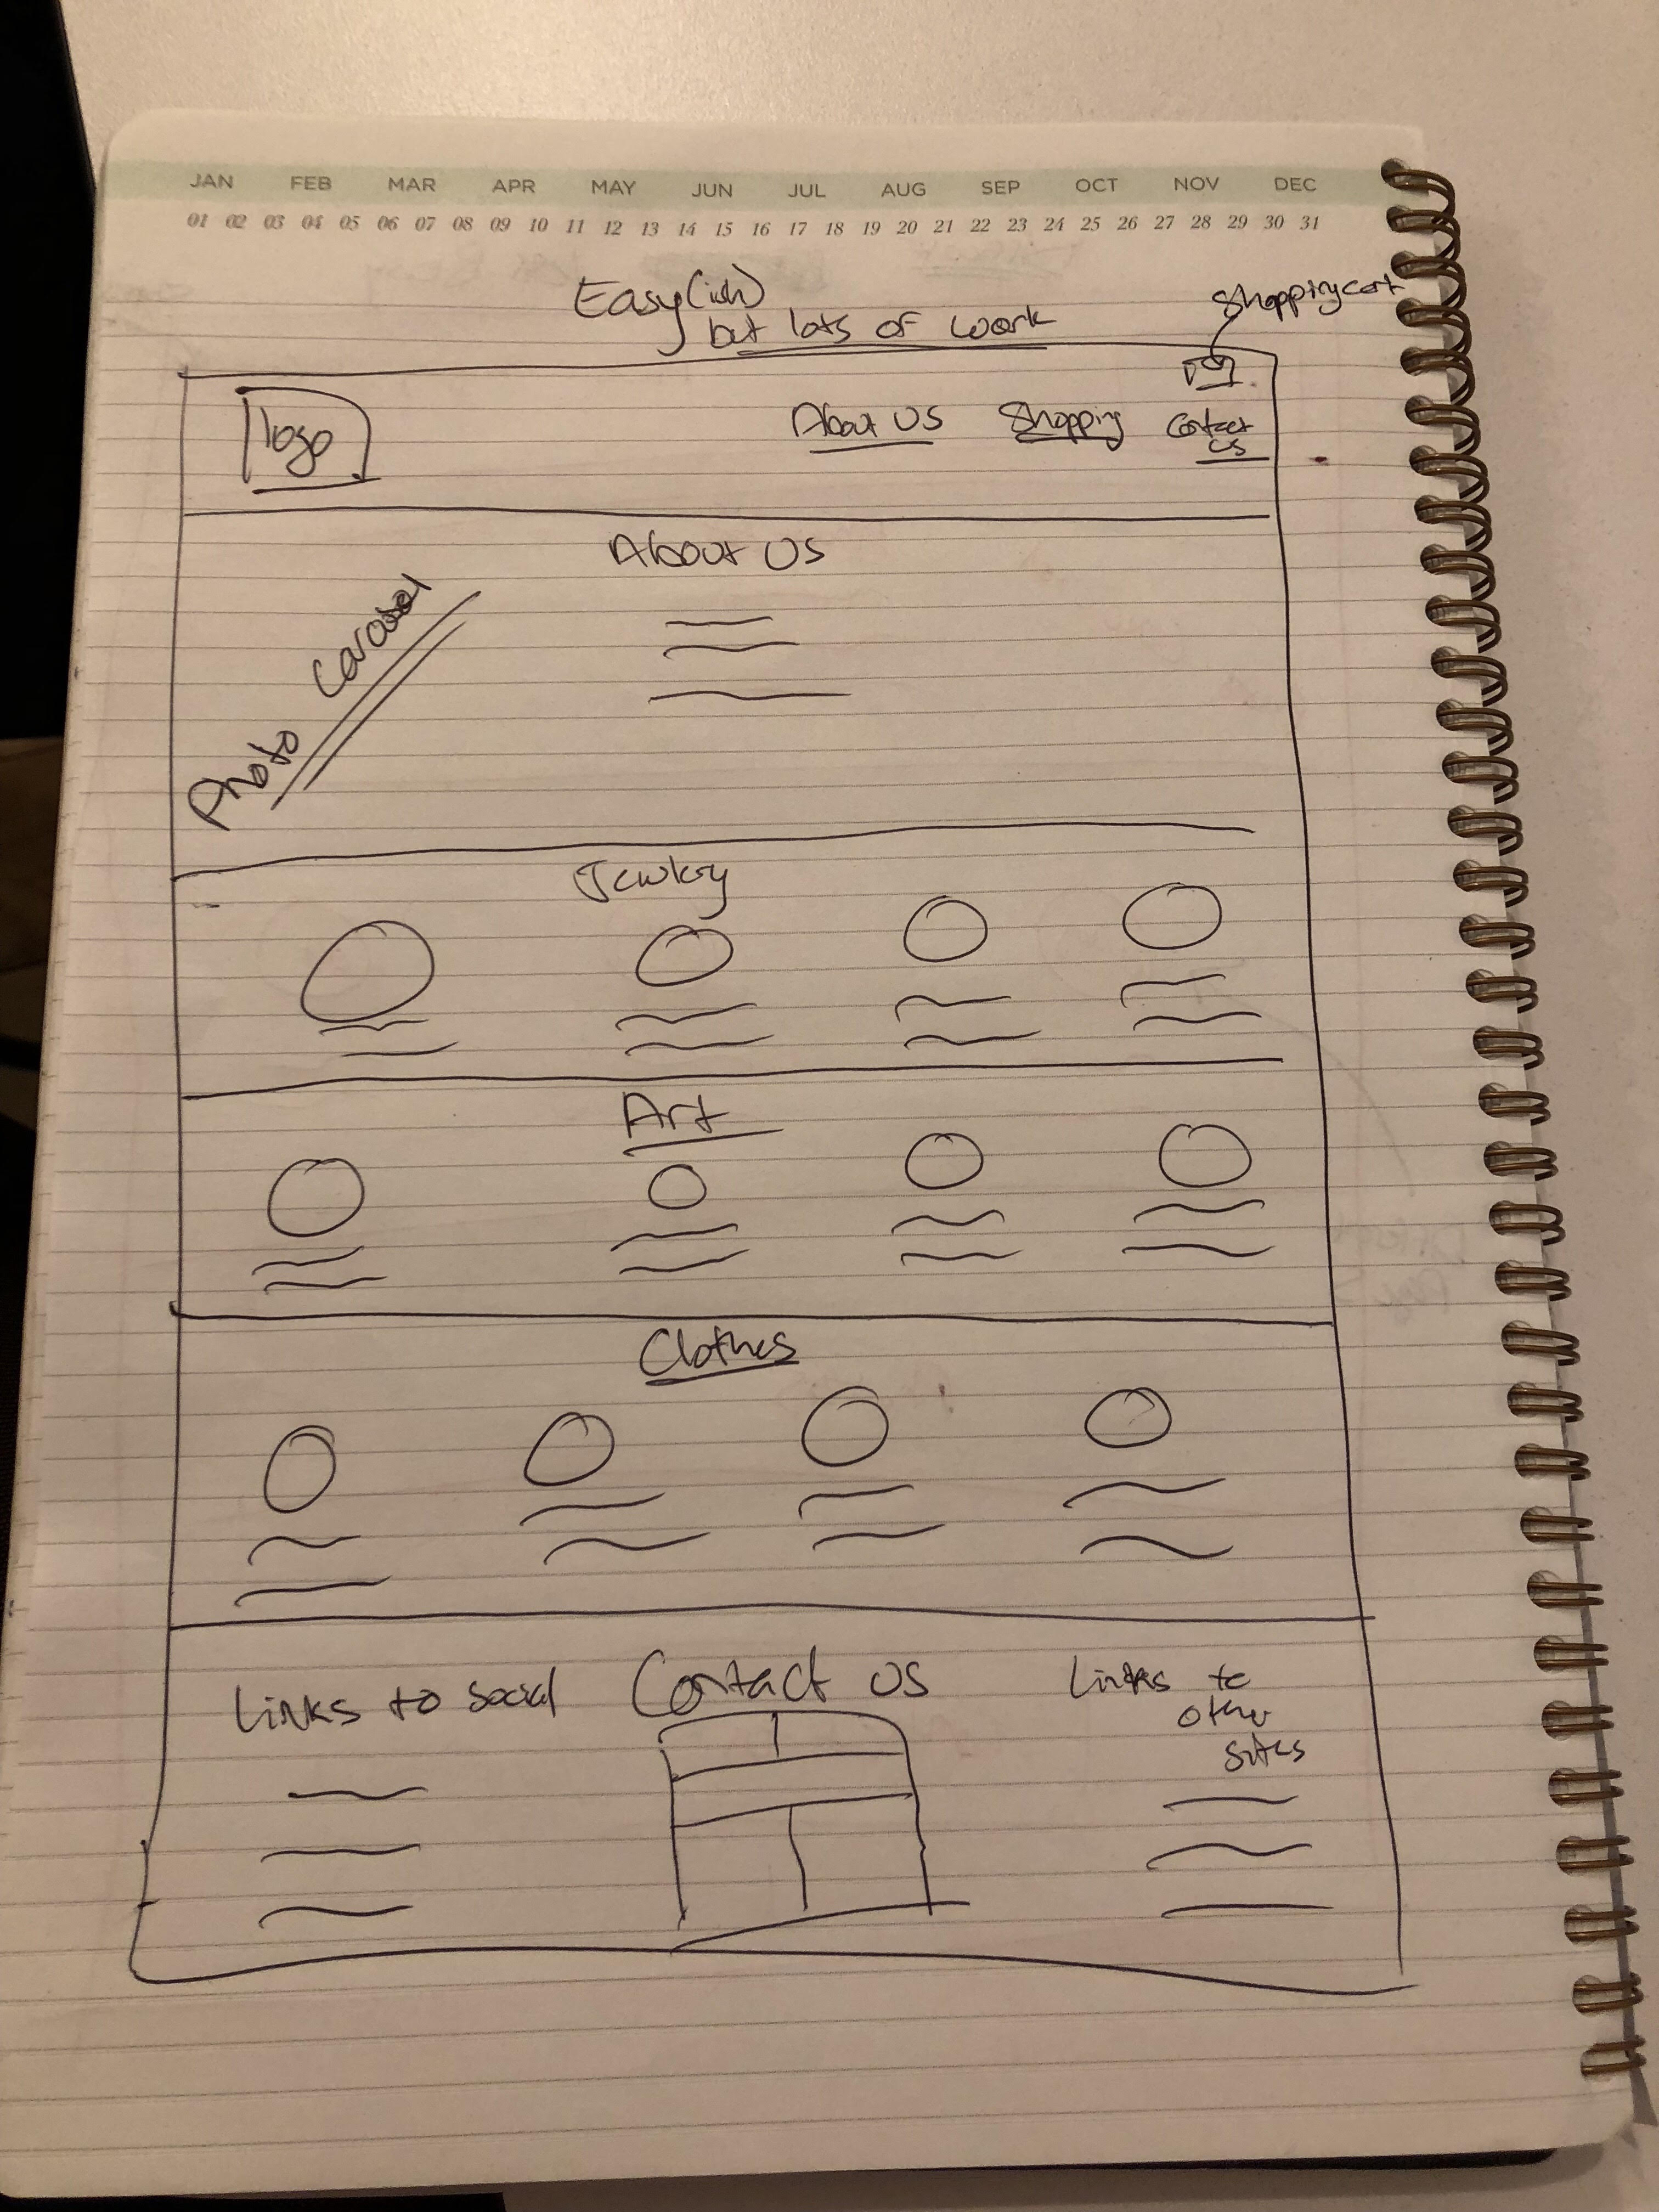 JAN FEB MAR APR MAY JUN JUL AUG SEP OCT NOV DEC
01 02 03 04 05 06 07 08 09 10 11 12 13 14 15 16 17 18 19 20 21 22 23 24 25 26 27 28 29 30 31
Easy(ish)
but lots of work
Shopping cart
logo
About US
Shopping
Contact
US
About US
Photo Carosel
Jewlry
Art
Clothes
Links to social
Contact US
Links to
other
sites